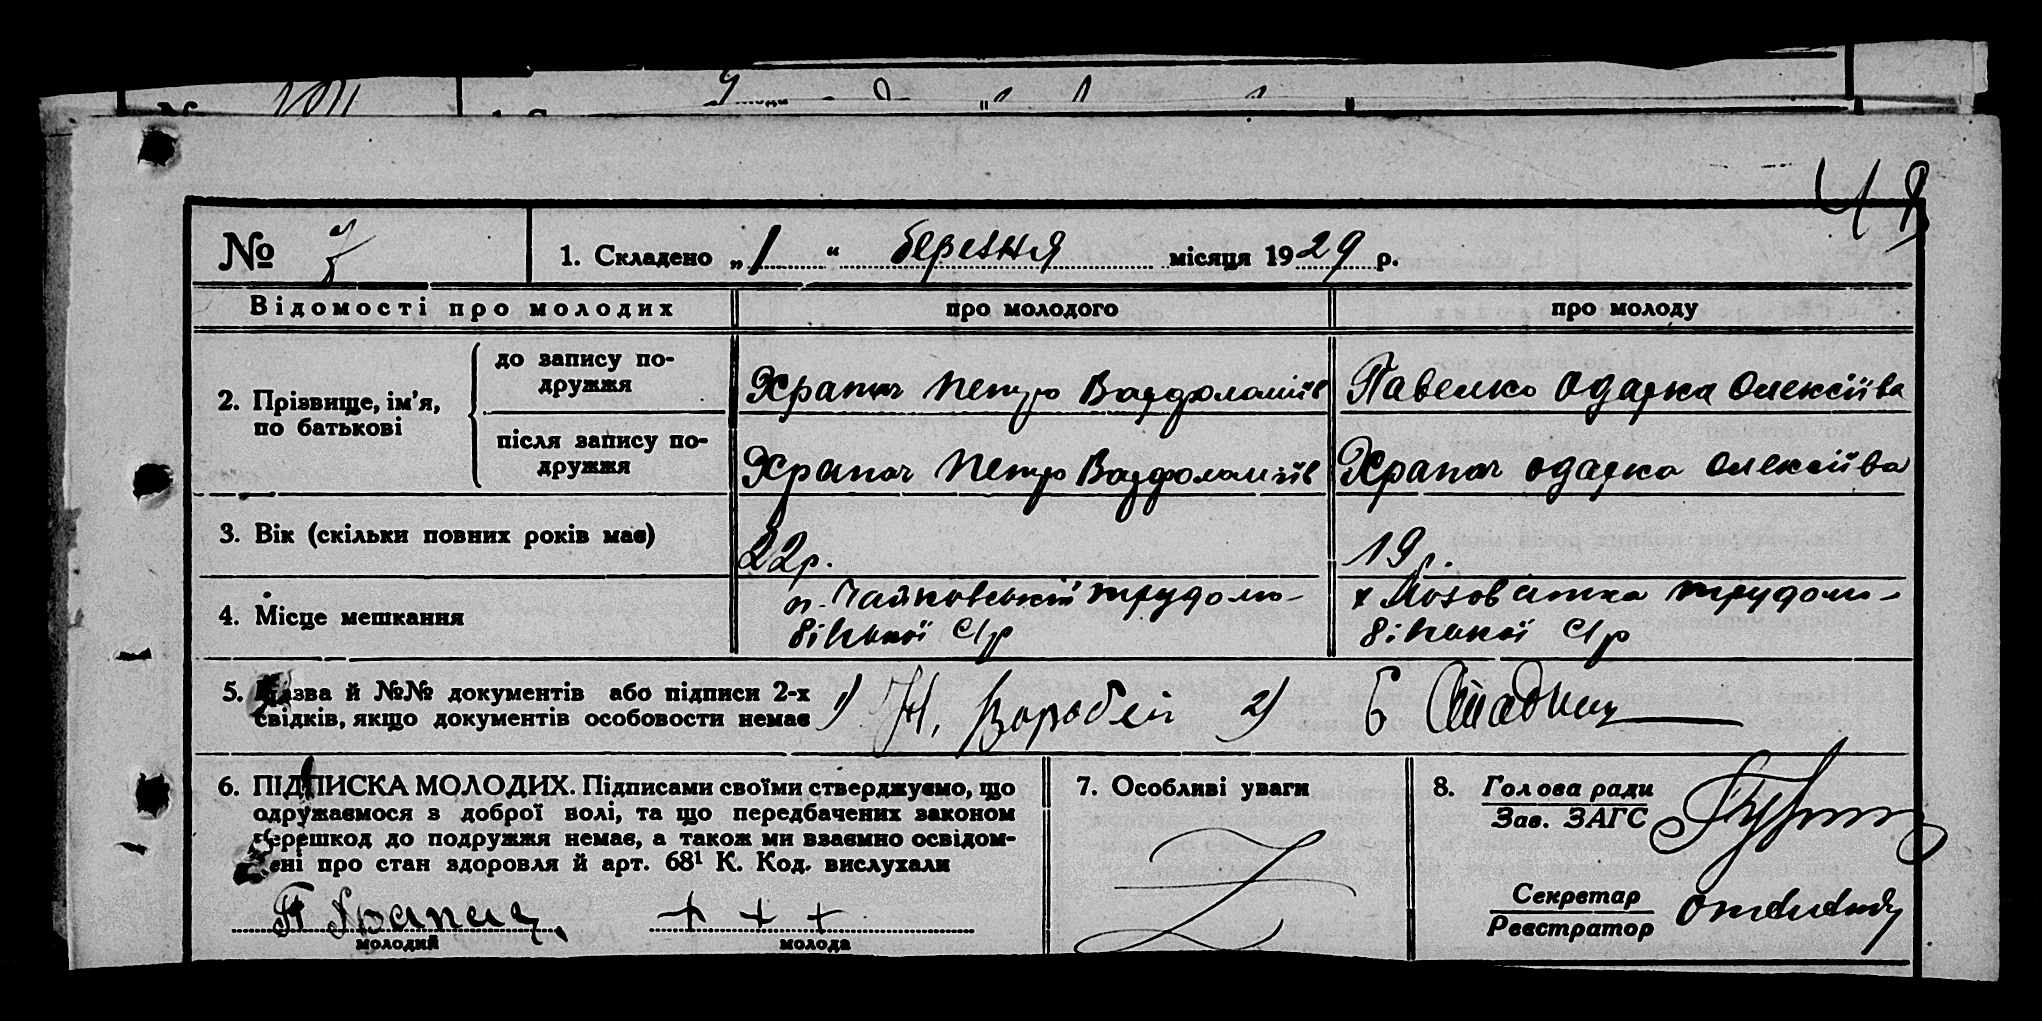 48
№ 7 1. Складено „1“ березня місяця 1929 р.
Відомості про молодих про молодого про молоду
2. Прізвище, ім'я, по батькові
до запису подружжя Храпач Петро Вархоломіїв Павелко Одарка Олексіїва
після запису подружжя Храпач Петро Варфоломіїв Храпач Одарка Олексіїва
3. Вік (скільки повних років має) 22 р. 19 р.
4. Місце мешкання
трудолю-
бівської с/р
х Лозоватка трудолю-
бівської с/р
5. Назва й №№ документів або підписи 2-х
свідків, якщо документів особовости немає 1) Н. Воробей 2)
6. ПІДПИСКА МОЛОДИХ. Підписами своїми стверджуємо, що
одружаємося з доброї волі, та що передбачених законом
перешкод до подружжя немає, а також ми взаємно освідом-
лені про стан здоровля й арт. 68¹ К. Код. вислухали
П Храпач + + +
молодий молода
7. Особливі уваги
8. Голова ради
Зав. ЗАГС
Секретар
Реєстратор